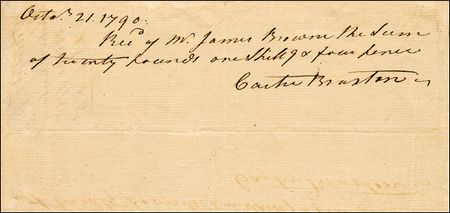 Octo.r 21. 1790.
Rec.d of Mr James Brown the Sum
of twenty pounds one Shillg & four pence
Carter Braxton